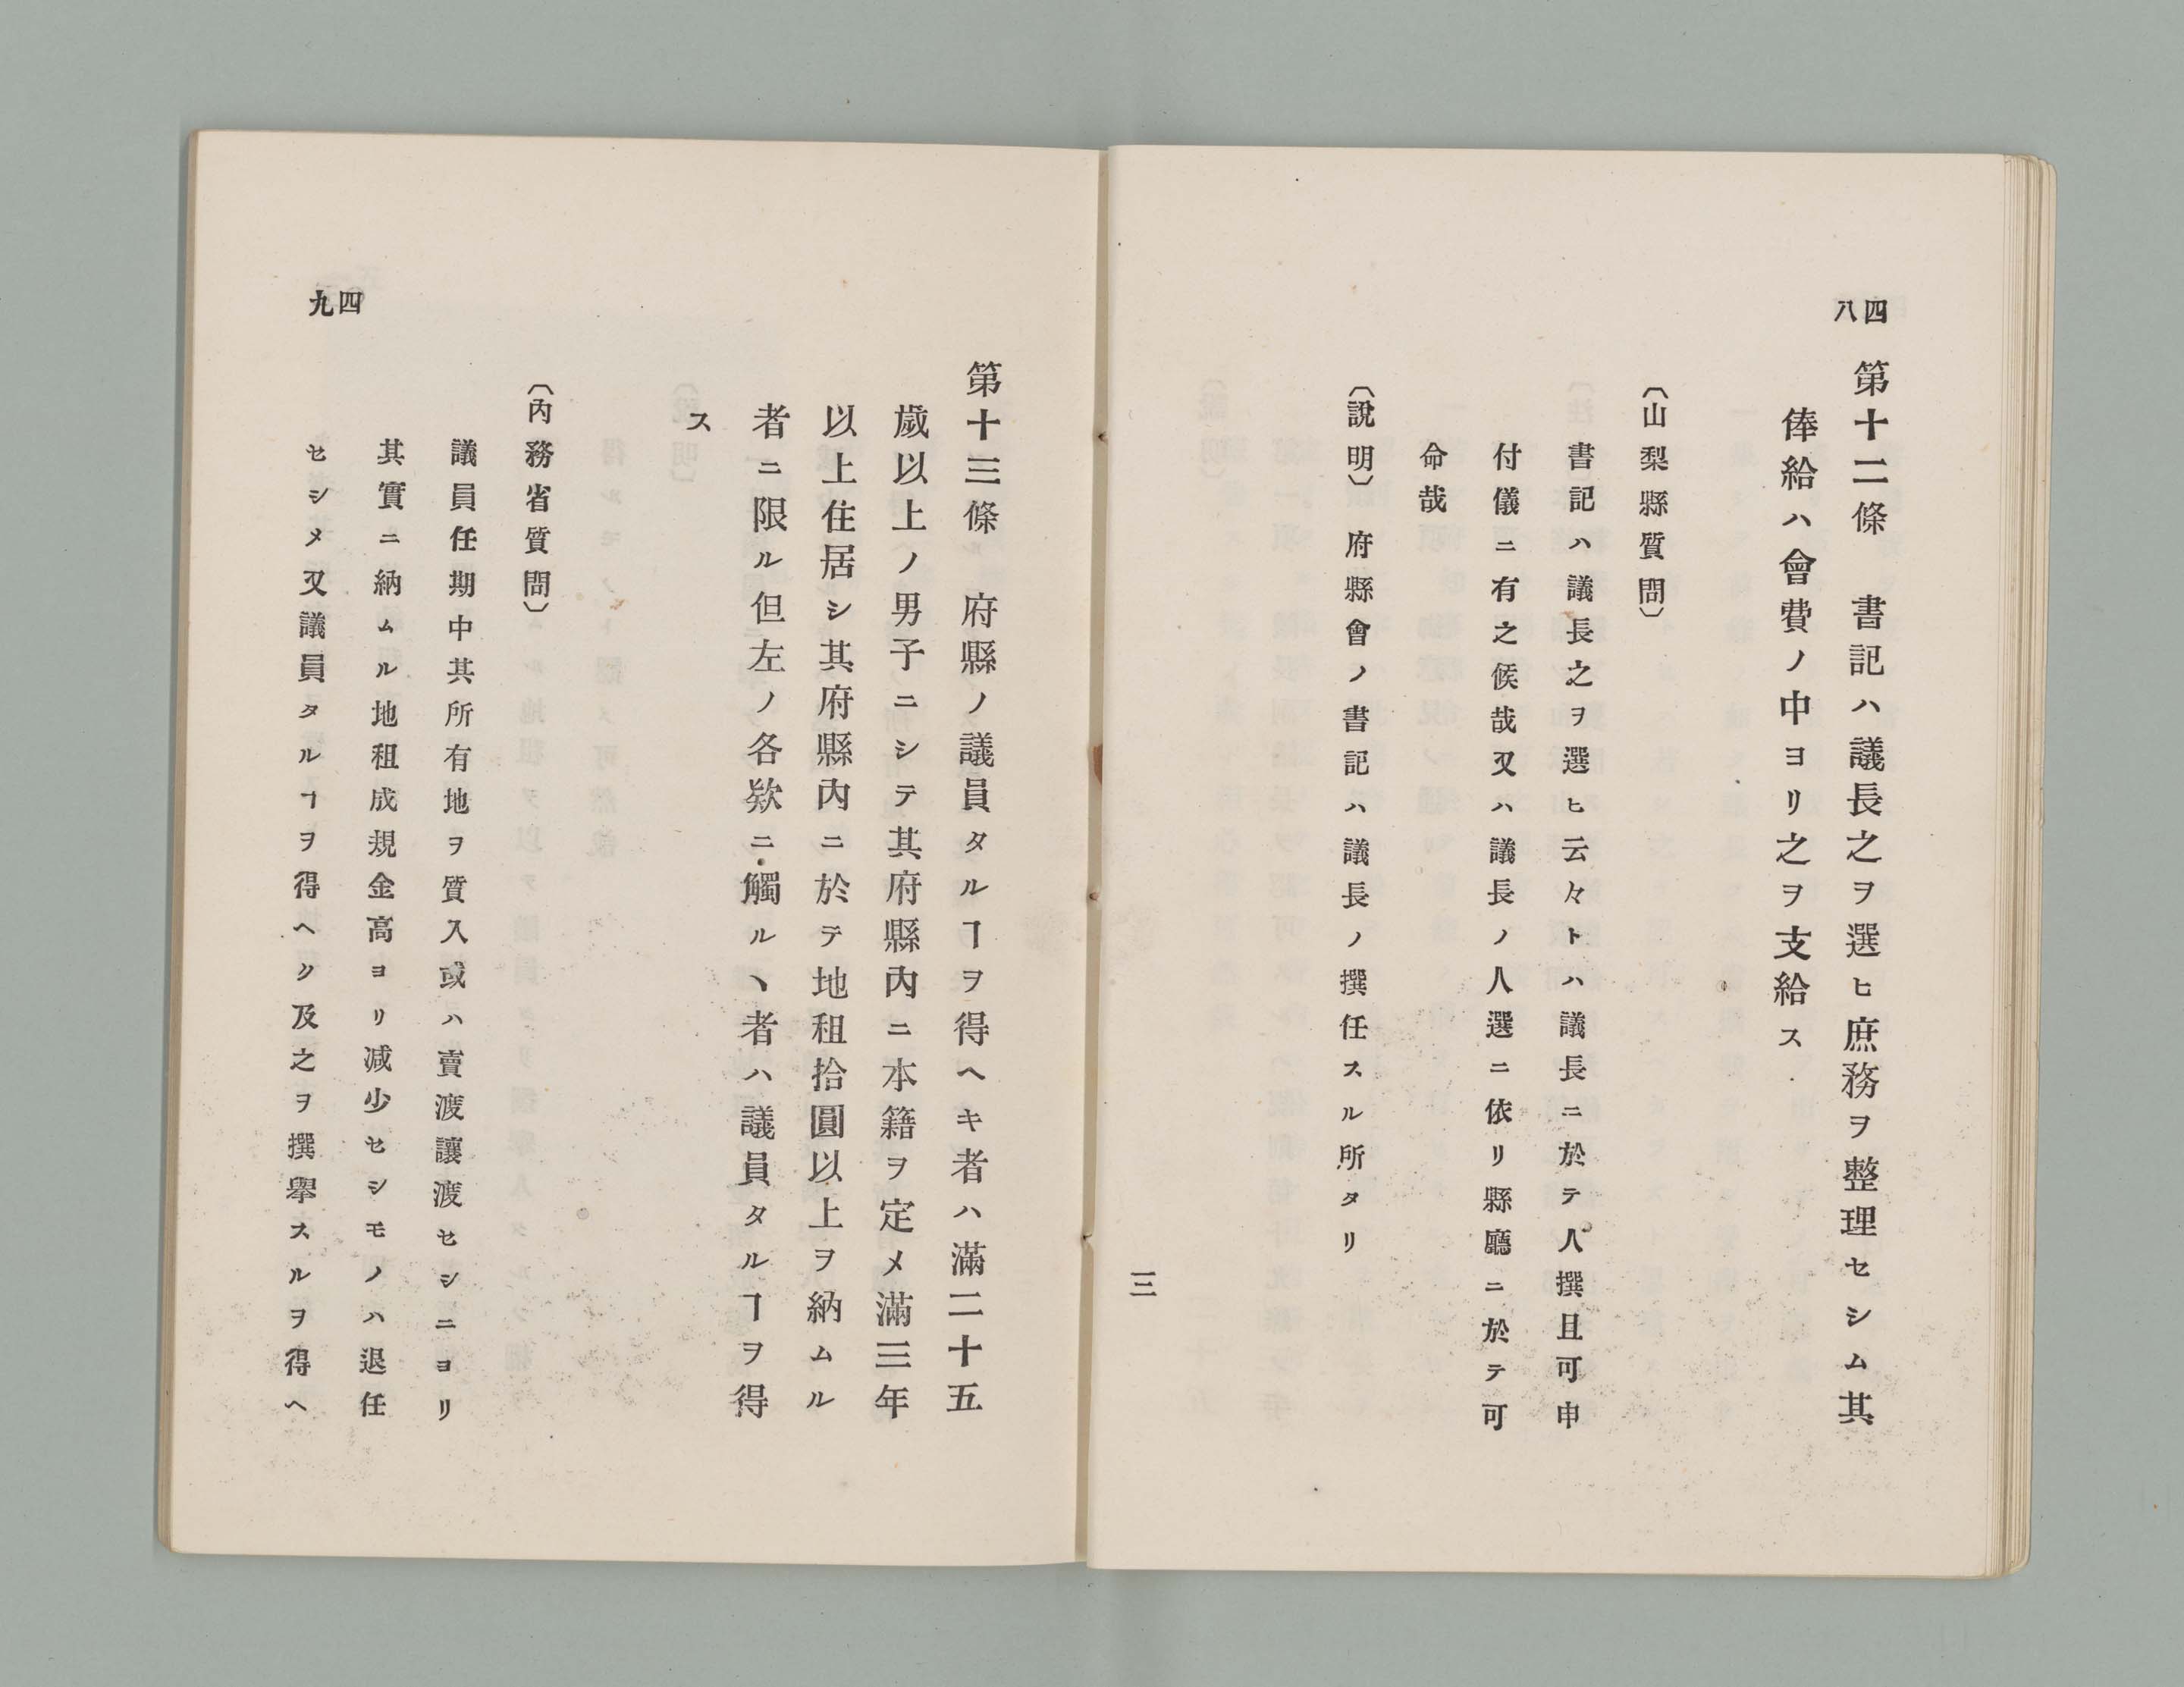 四八
第十二條　書記ハ議長之ヲ選ヒ庶務ヲ整理セシム其
俸給ハ會費ノ中ヨリ之ヲ支給ス
〔山梨縣質問〕
書記ハ議長之ヲ選ヒ云々トハ議長ニ於テ人撰且可申
付儀ニ有之候哉又ハ議長ノ人選ニ依リ縣廳ニ於テ可
命哉
〔說明〕　府縣會ノ書記ハ議長ノ撰任スル所タリ
三
四九
第十三條　府縣ノ議員タルヿヲ得ヘキ者ハ滿二十五
歲以上ノ男子ニシテ其府縣內ニ本籍ヲ定メ滿三年
以上住居シ其府縣內ニ於テ地租拾圓以上ヲ納ムル
者ニ限ル但左ノ各欵ニ觸ルヽ者ハ議員タルヿヲ得
ス
〔內務省質問〕
議員任期中其所有地ヲ質入或ハ賣渡讓渡セシニヨリ
其實ニ納ムル地租成規金高ヨリ减少セシモノハ退任
セシメ又議員タルヿヲ得ヘク及之ヲ撰擧スルヲ得ヘ